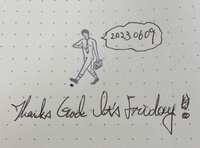 20230609
Thanks God It's Friday!